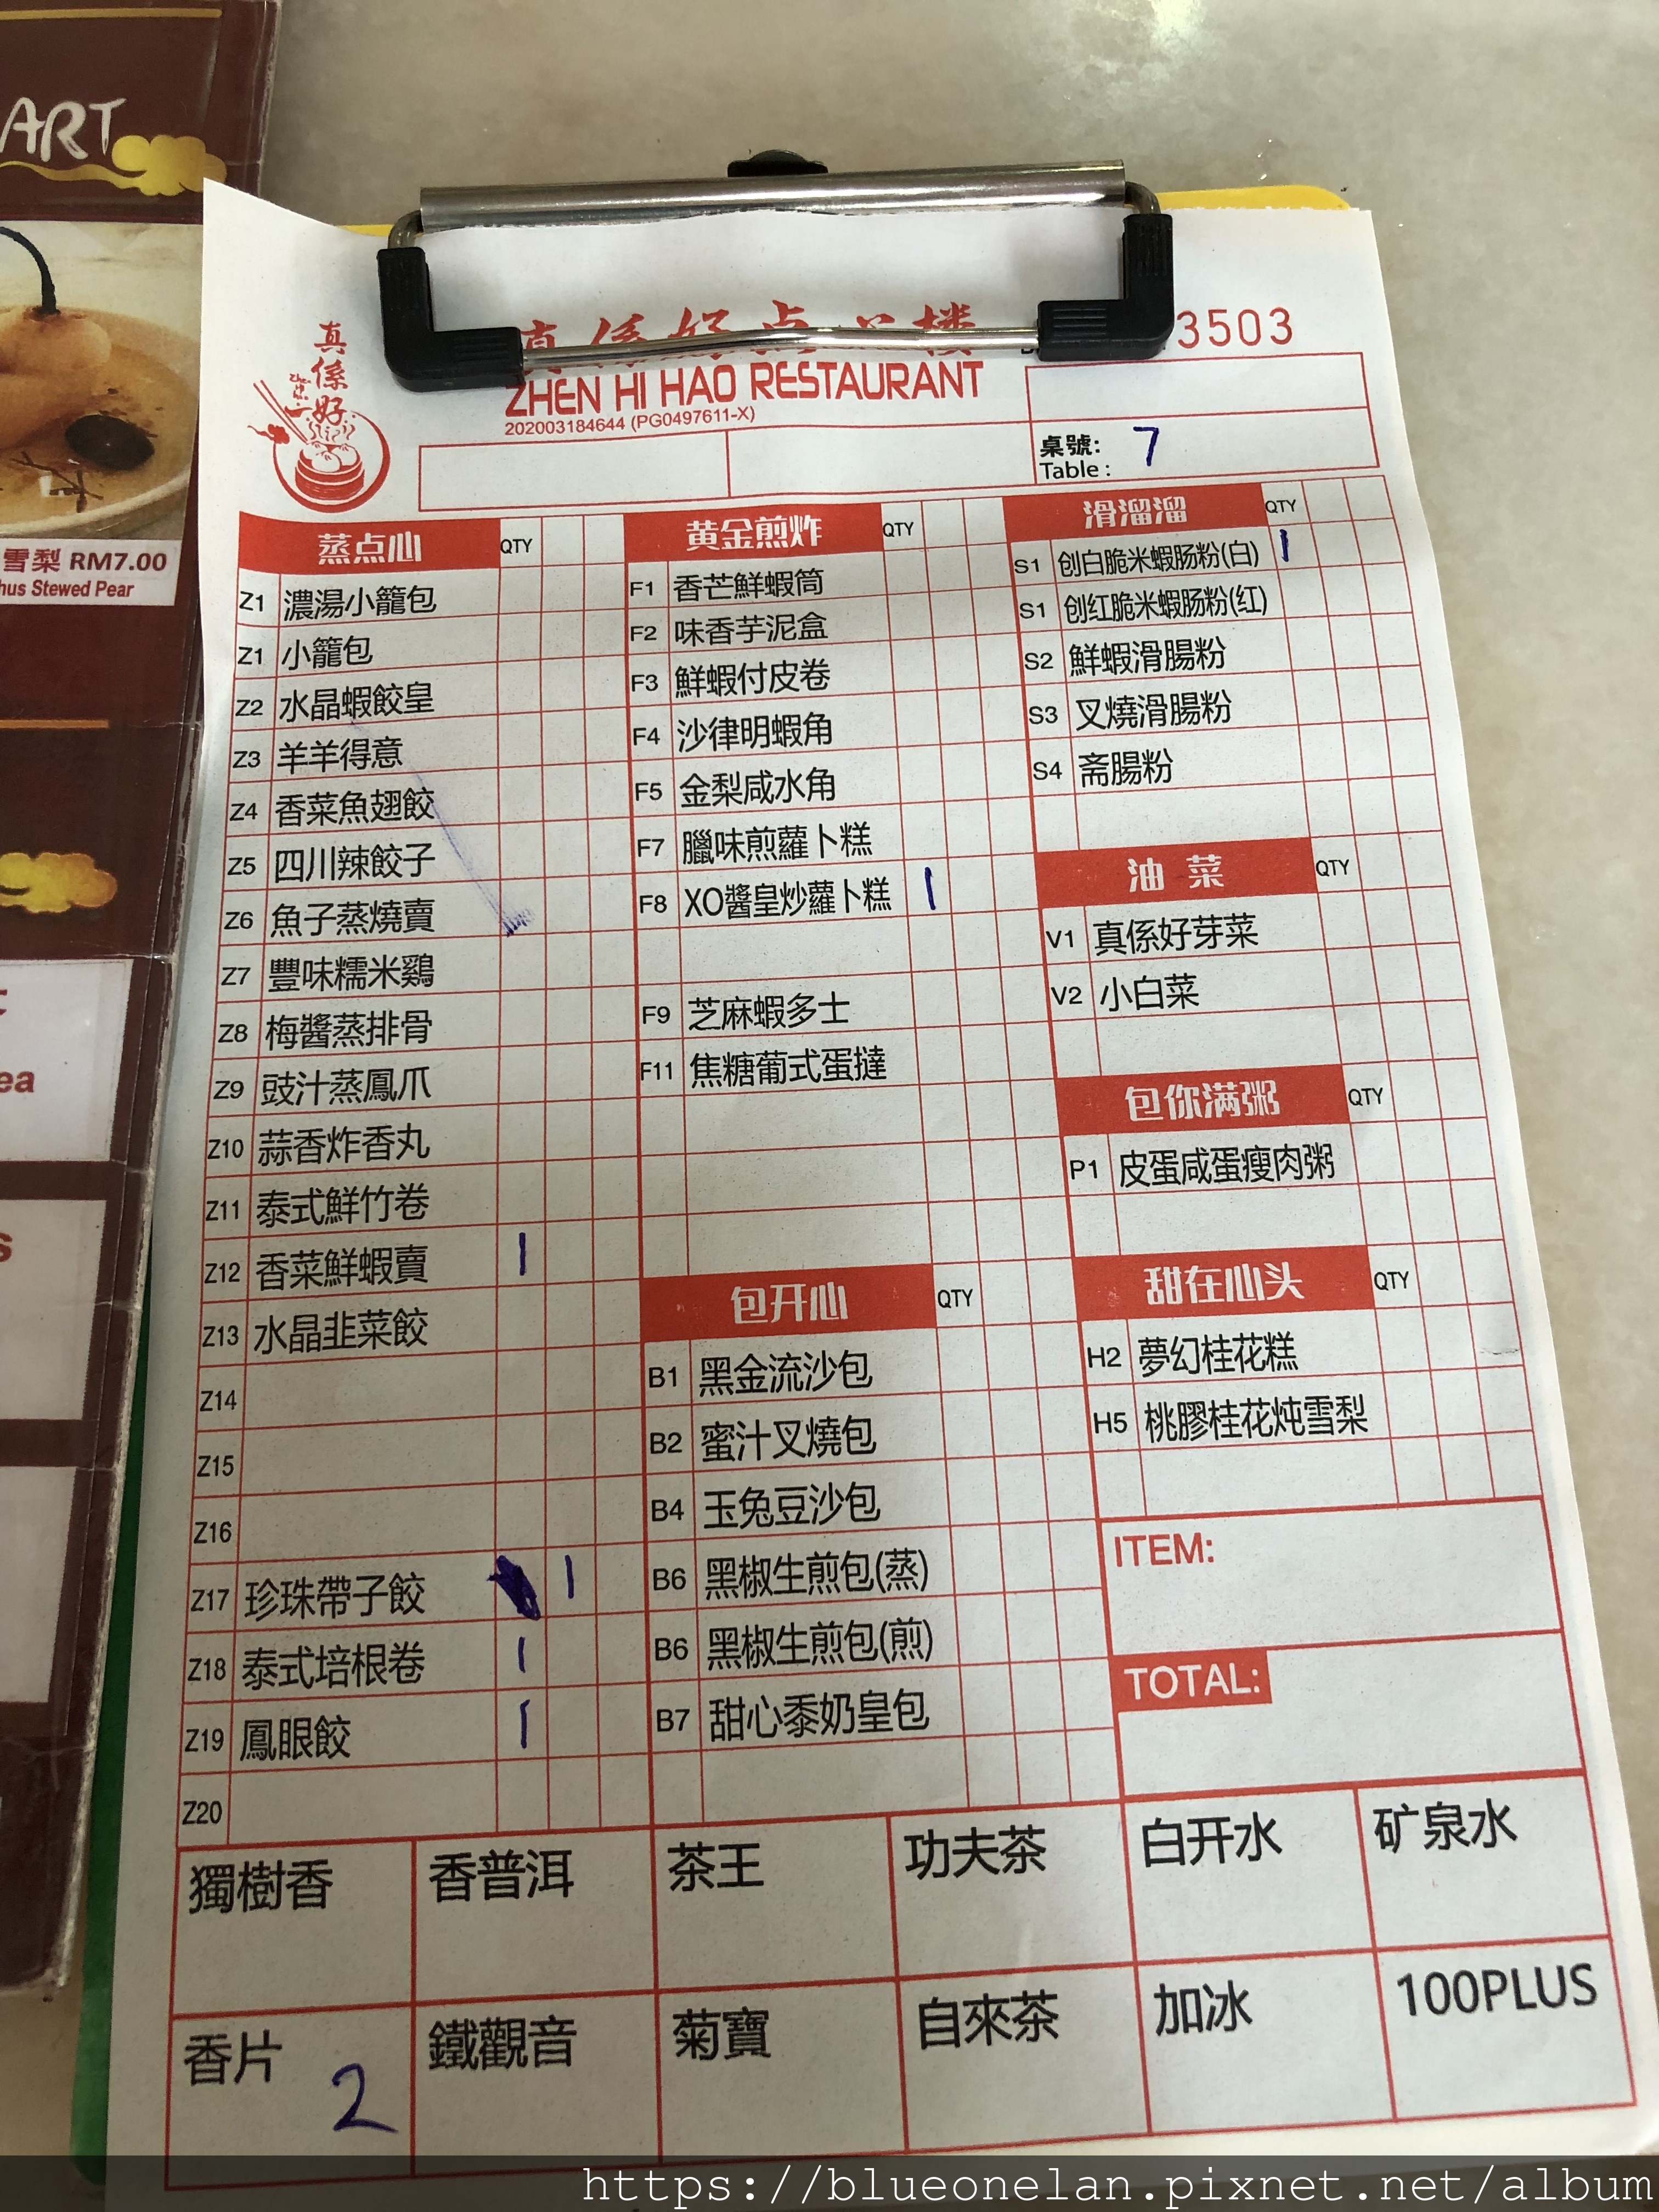 ART
雪梨 RM7.00
hus Stewed Pear
ea
s
真係好
真係好点心楼
3503
ZHEN HI HAO RESTAURANT
202003184644 (PG0497611-X)
桌號: 7
Table :
蒸点心 QTY
Z1 濃湯小籠包
Z1 小籠包
Z2 水晶蝦餃皇
Z3 羊羊得意
Z4 香菜魚翅餃
Z5 四川辣餃子
Z6 魚子蒸燒賣
Z7 豐味糯米鷄
Z8 梅醬蒸排骨
Z9 豉汁蒸鳳爪
Z10 蒜香炸香丸
Z11 泰式鮮竹卷
Z12 香菜鮮蝦賣 1
Z13 水晶韭菜餃
Z14
Z15
Z16
Z17 珍珠帶子餃 1
Z18 泰式培根卷 1
Z19 鳳眼餃 1
Z20
黄金煎炸 QTY
F1 香芒鮮蝦筒
F2 味香芋泥盒
F3 鮮蝦付皮卷
F4 沙律明蝦角
F5 金梨咸水角
F7 臘味煎蘿卜糕
F8 XO醬皇炒蘿卜糕 1
F9 芝麻蝦多士
F11 焦糖葡式蛋撻
包开心 QTY
B1 黑金流沙包
B2 蜜汁叉燒包
B4 玉兔豆沙包
B6 黑椒生煎包(蒸)
B6 黑椒生煎包(煎)
B7 甜心黍奶皇包
滑溜溜 QTY
S1 创白脆米蝦肠粉(白) 1
S1 创红脆米蝦肠粉(红)
S2 鮮蝦滑腸粉
S3 叉燒滑腸粉
S4 斋腸粉
油 菜 QTY
V1 真係好芽菜
V2 小白菜
包你满粥 QTY
P1 皮蛋咸蛋瘦肉粥
甜在心头 QTY
H2 夢幻桂花糕
H5 桃膠桂花炖雪梨
ITEM:
TOTAL:
獨樹香 香普洱 茶王 功夫茶 白开水 矿泉水
香片 2 鐵觀音 菊寶 自來茶 加冰 100PLUS
https://blueonelan.pixnet.net/album